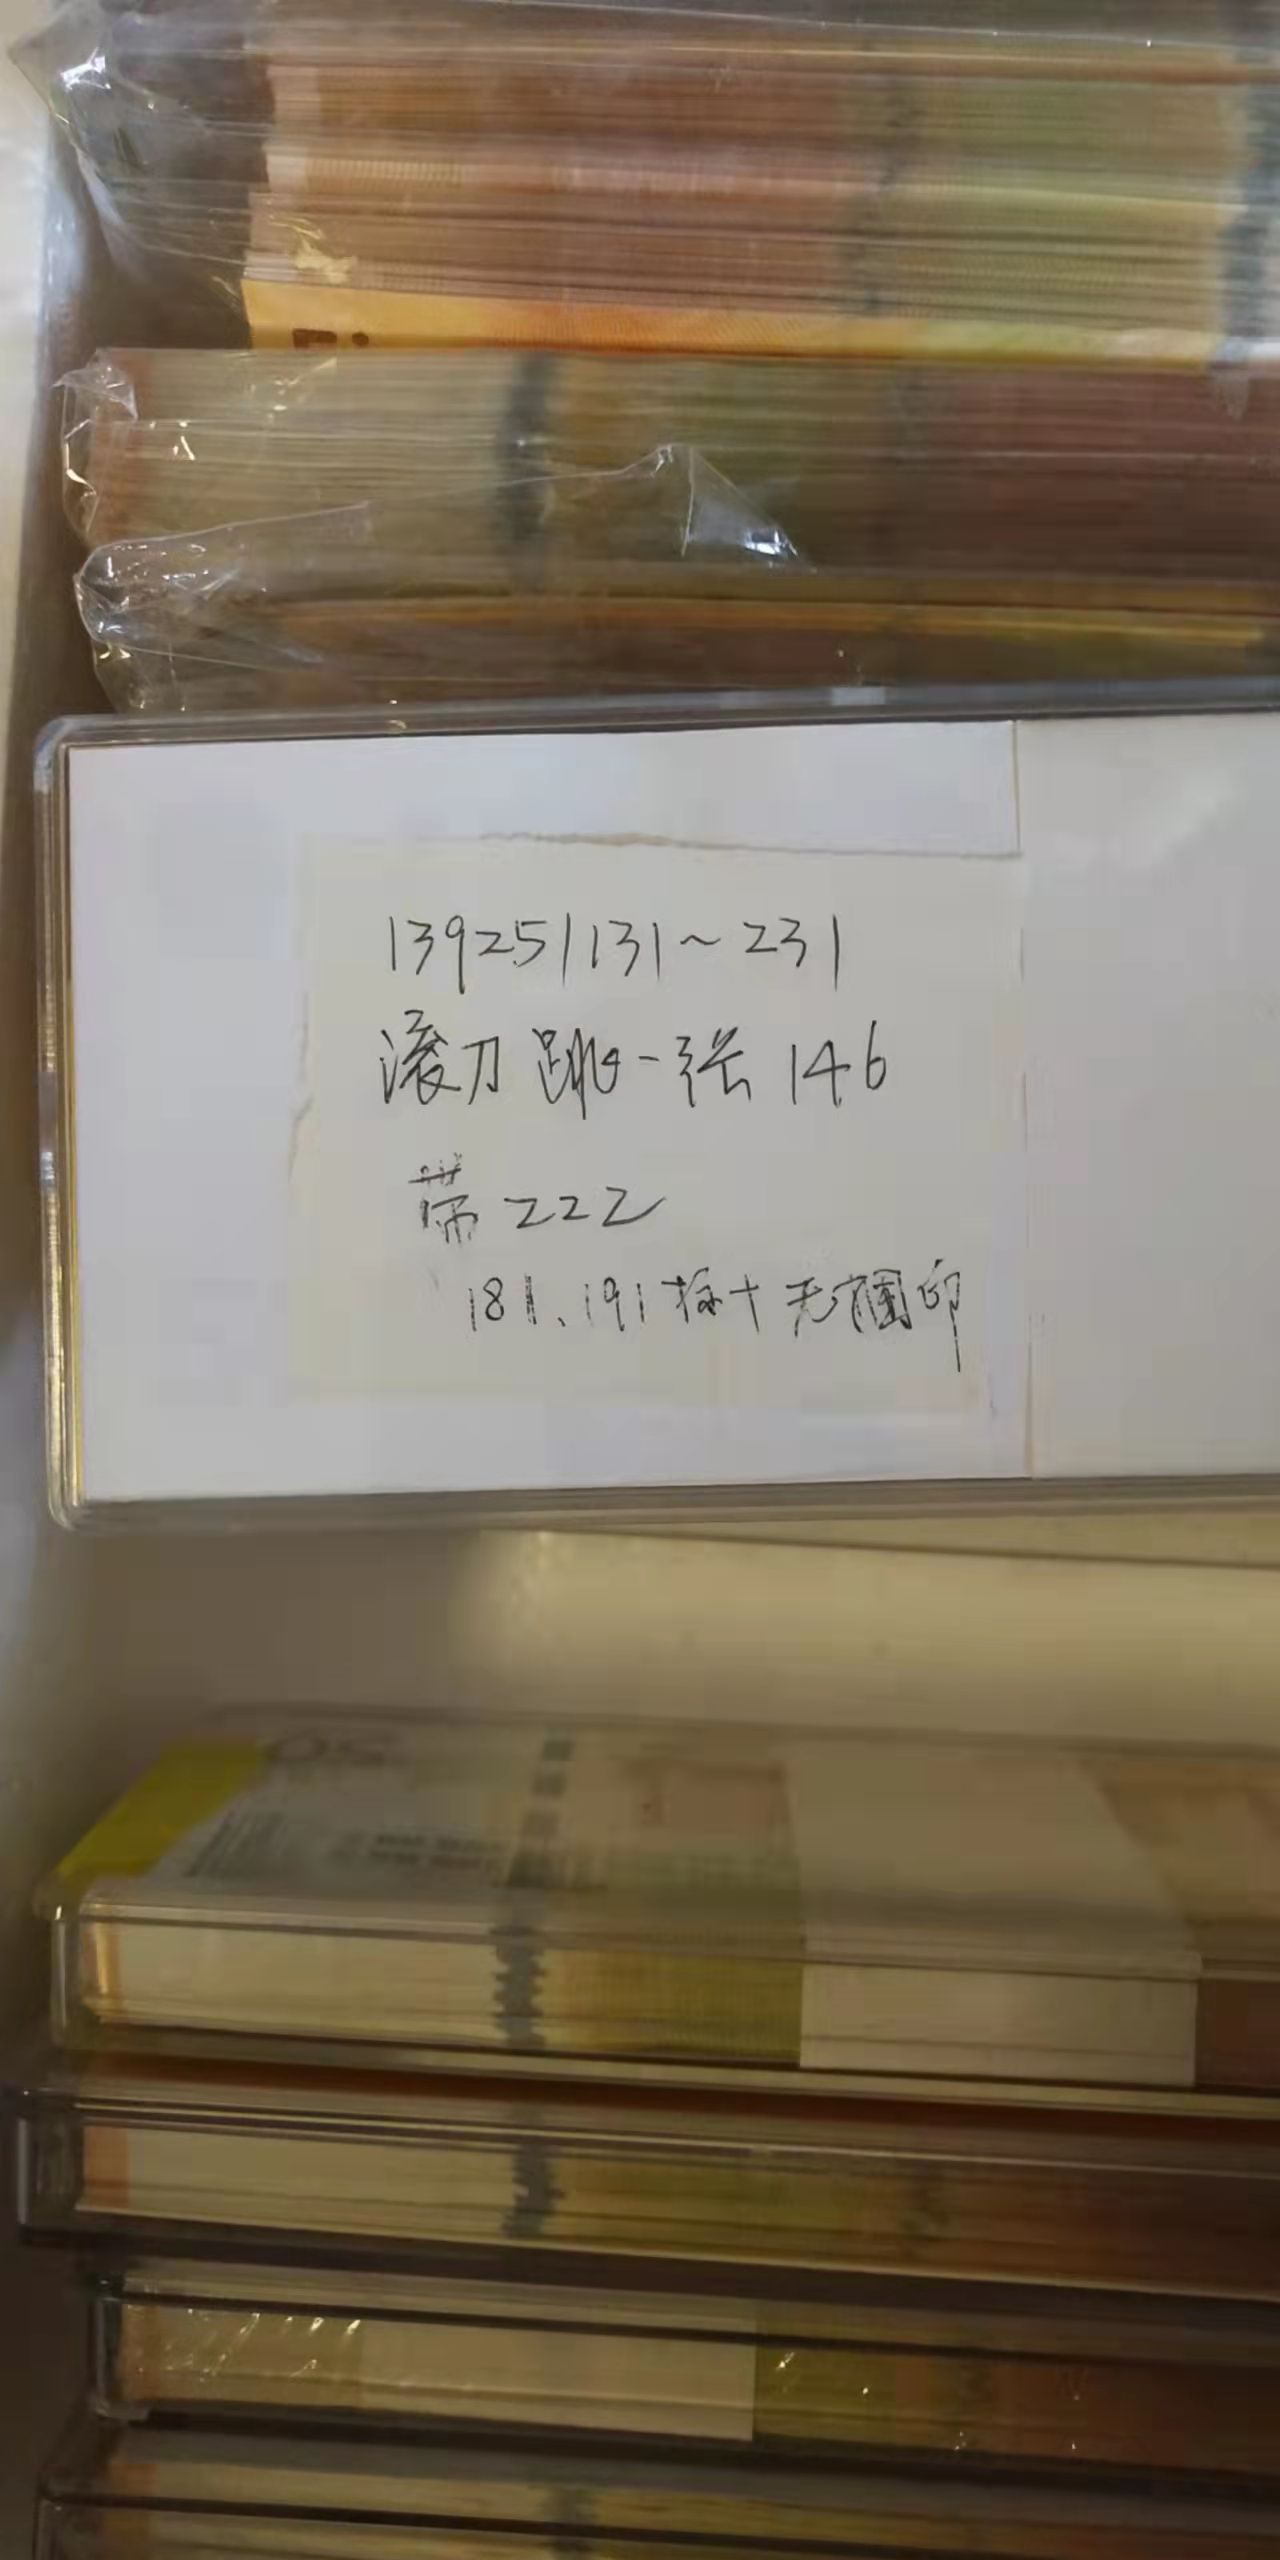 139251131~231
滚刀 跳一张 146
带222
181、191标十无菌印
50